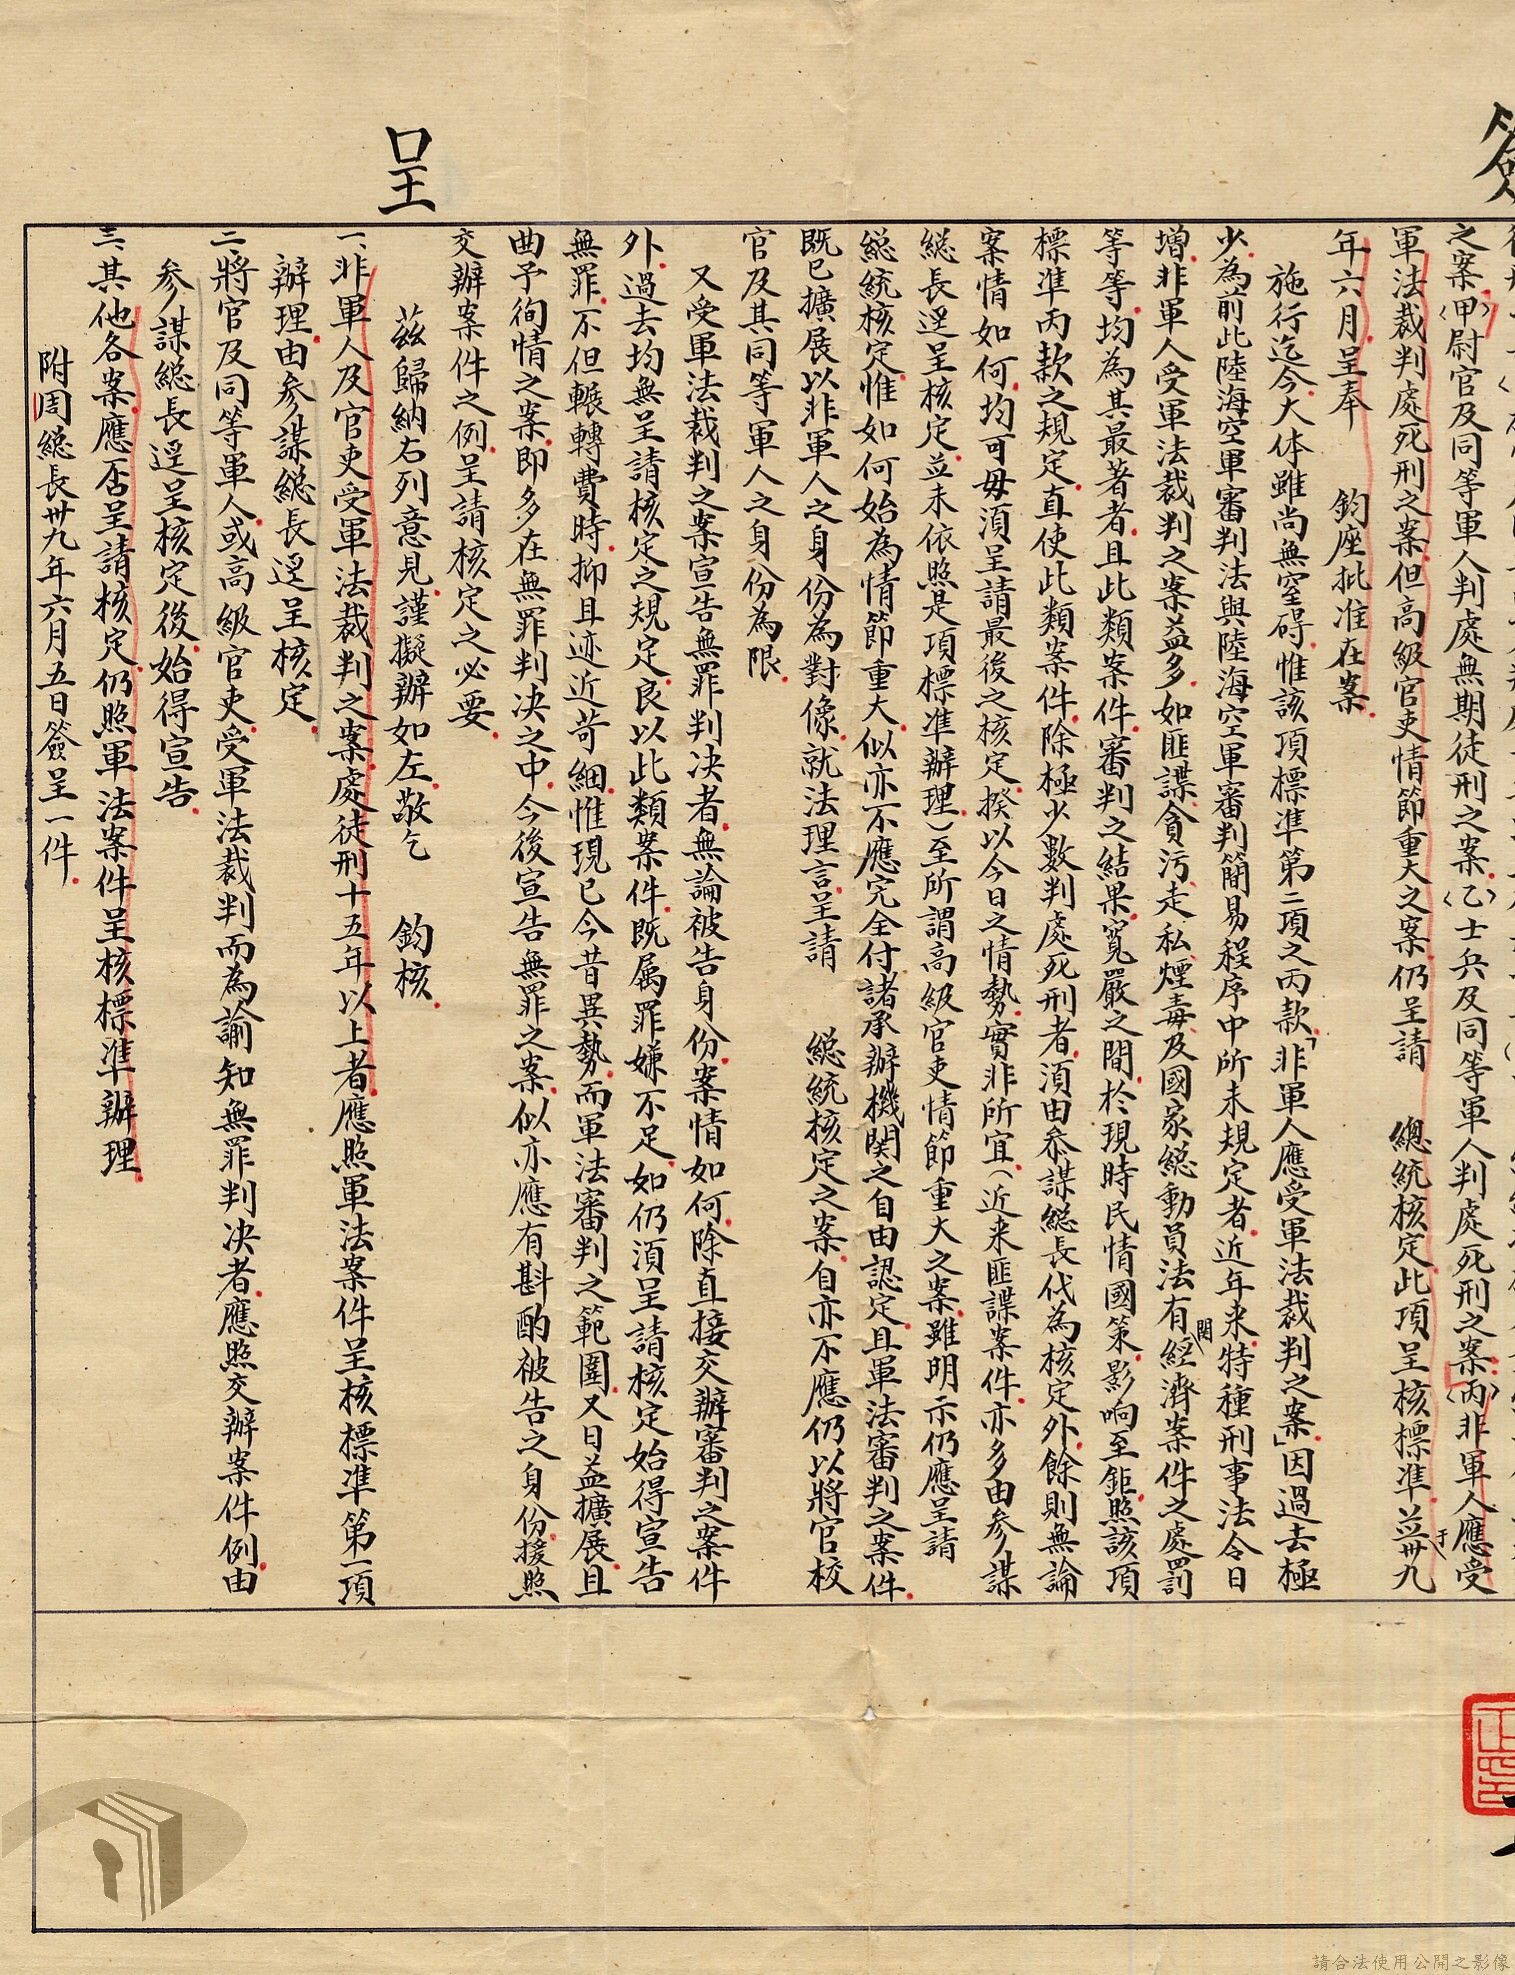 簽
呈
之案。〈甲〉尉官及同等軍人判處無期徒刑之案。〈乙〉士兵及同等軍人判處死刑之案。〈丙〉非軍人應受
軍法裁判處死刑之案。但高級官吏情節重大之案。仍呈請　總統核定。此項呈核標準。並于卅九
年六月。呈奉　鈞座批准在案。
施行迄今。大体雖尚無窒碍。惟該項標準第二項之丙款。「非軍人應受軍法裁判之案」。因過去極
少。為前此陸海空軍審判法與陸海空軍審判簡易程序中所未規定者。近年来。特種刑事法令日
增。非軍人受軍法裁判之案益多。如匪諜。貪污。走私。煙毒。及國家總動員法有関經濟案件之處罰
等等。均為其最著者。且此類案件。審判之結果。寬嚴之間。於現時民情國策。影响至鉅。照該項
標準丙款之規定。直使此類案件。除極少數判處死刑者。須由叅謀總長代為核定外。餘則無論
案情如何。均可毋須呈請最後之核定。揆以今日之情勢。實非所宜。（近来匪諜案件。亦多由參謀
總長逕呈核定。並未依照是項標準辦理。）至所謂高級官吏情節重大之案。雖明示仍應呈請
總統核定。惟如何始為情節重大。似亦不應完全付諸承辦機関之自由認定。且軍法審判之案件。
既已擴展以非軍人之身份為對像。就法理言。呈請　總統核定之案。自亦不應仍以將官校
官及其同等軍人之身份為限。
又受軍法裁判之案宣告無罪判決者。無論被告身份。案情如何。除直接交辦審判之案件
外。過去均無呈請核定之規定。良以此類案件。既属罪嫌不足。如仍須呈請核定始得宣告
無罪。不但輾轉費時。抑且迹近苛細。惟現已今昔異勢。而軍法審判之範圍。又日益擴展。且
曲予徇情之案。即多在無罪判決之中。今後宣告無罪之案。似亦應有斟酌被告之身份。援照
交辦案件之例。呈請核定之必要。
茲歸納右列意見。謹擬辦如左。敬乞　鈞核。
一、非軍人及官吏受軍法裁判之案。處徒刑十五年以上者。應照軍法案件呈核標準第一項
辦理。由參謀總長逕呈核定。
二、將官及同等軍人。或高級官吏。受軍法裁判而為諭知無罪判決者。應照交辦案件例。由
參謀總長逕呈核定後。始得宣告。
三、其他各案。應否呈請核定。仍照軍法案件呈核標準辦理。
附周總長卅九年六月五日簽呈一件。
請合法使用公開之影像